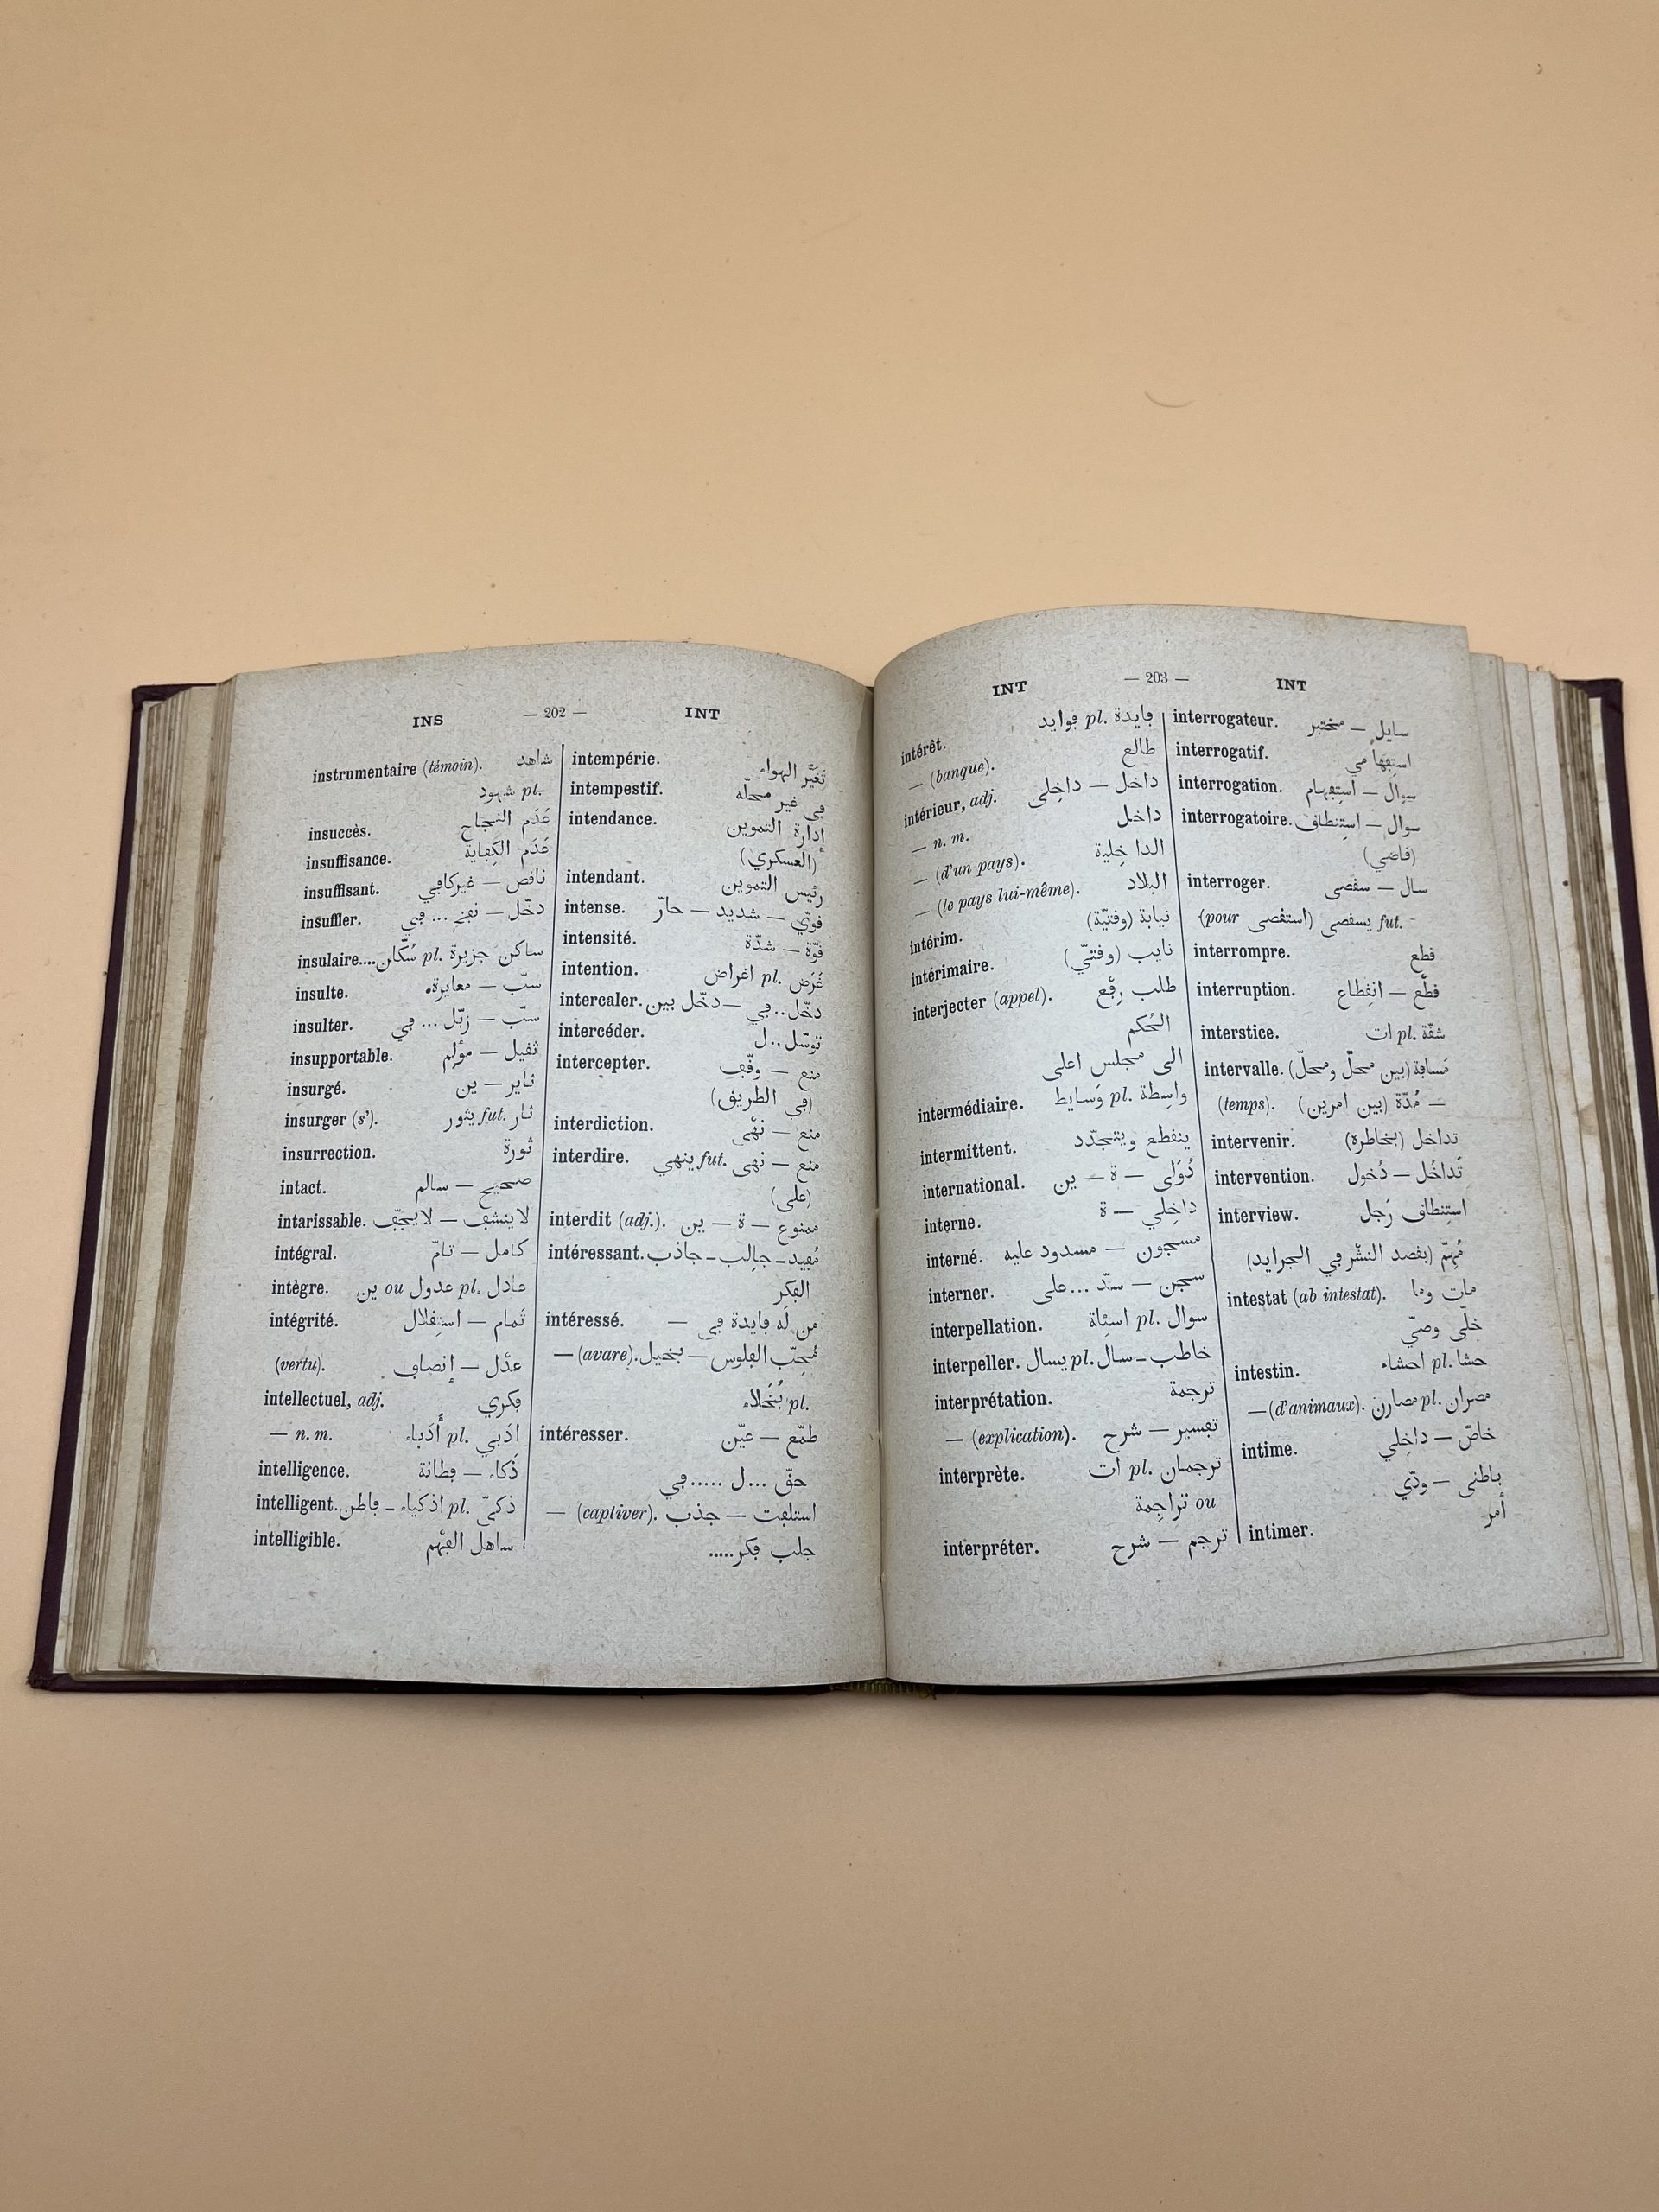 INS — 202 — INT
instrumentaire (témoin). شاهد
pl. شهود
insuccès. عَدَم النجاح
insuffisance. عَدَم الكِفاية
insuffisant. ناقص — غيركافي
insuffler. دخّل — نفخ ... في
insulaire.... ساكن جزيرة pl. سُكّان
insulte. سبّ — معايرة
insulter. سبّ — زبّل ... في
insupportable. ثقيل — مؤلِم
insurgé. ثاير — ين
insurger (s'). ثار fut. يثور
insurrection. ثَورة
intact. صحيح — سالم
intarissable. لاينشف — لايجفّ
intégral. كامل — تامّ
intègre. عادل pl. عدول ou ين
intégrité. تَمام — استقلال
(vertu). عدْل — إنصاف
intellectuel, adj. فِكري
— n. m. ادَبي pl. أُدَباء
intelligence. ذَكاء — فِطانة
intelligent. ذكيّ pl. اذكياء — فاطن
intelligible. ساهل الفهْم
intempérie. تَغَيُّر الهواء
intempestif. في غير محلّه
intendance. إدارة التموين
(العسكري)
intendant. رئيس التموين
intense. قويّ — شديد — حارّ
intensité. قوّة — شدّة
intention. غَرَض pl. اغراض
intercaler. دخّل..في — دخّل بين
intercéder. توسّل..ل
intercepter. منع — وقّف
(في الطريق)
interdiction. منع — نهْى
interdire. منع — نهى fut. ينهي
(على)
interdit (adj.). ممنوع — ة — ين
intéressant. مُفيد — جالِب — جاذب
الفِكِر
intéressé. من له فايدة في —
— (avare). مُحِبّ الفلوس — بخيل
pl. بُخَلاء
intéresser. طمّع — عيّن
حقّ ...ل .....في
— (captiver). استلفت — جذب
جلب فِكر.....
INT — 203 — INT
intérêt. فايدة pl. فوايد
— (banque). طالع
intérieur, adj. داخل — داخِلى
— n. m. داخل
— (d'un pays). الداخِلية
— (le pays lui-même). البلاد
intérim. نيابة (وقتيّة)
intérimaire. نايب (وقتيّ)
interjecter (appel). طلب رفْع
الحُكم
الى مجلس اعلى
intermédiaire. واسِطة pl. وَسايط
intermittent. ينقطع ويتجدّد
international. دُوَلى — ة — ين
interne. داخِلي — ة
interné. مسجون — مسدود عليه
interner. سجن — سدّ ...على
interpellation. سوال pl. اسئِلة
interpeller. خاطب — سال pl. يسال
interprétation. ترجمة
— (explication). تفسير — شرح
interprète. ترجمان pl. ات
ou تراجِمة
interpréter. ترجم — شرح
interrogateur. سايل — مختبر
interrogatif. استِفهامي
interrogation. سوال — استِفهام
interrogatoire. سوال — استِنطاق
(قاضي)
interroger. سال — سقصى
fut. يسقصي (استقصى pour)
interrompre. قطع
interruption. قطْع — انقطاع
interstice. شقّة pl. ات
intervalle. مَسافة (بين محلّ ومحلّ)
— (temps). مُدّة (بين امرين)
intervenir. تداخل (بخاطره)
intervention. تَداخُل — دُخول
interview. استِنطاق رَجل
مُهِمّ (بقصد النشْر في الجرايد)
intestat (ab intestat). مات وما
خلّى وصيّ
intestin. حشا pl. احشاء
— (d'animaux). مصران pl. مصارن
intime. خاصّ — داخِلي
باطنى — ودّي
intimer. أمر